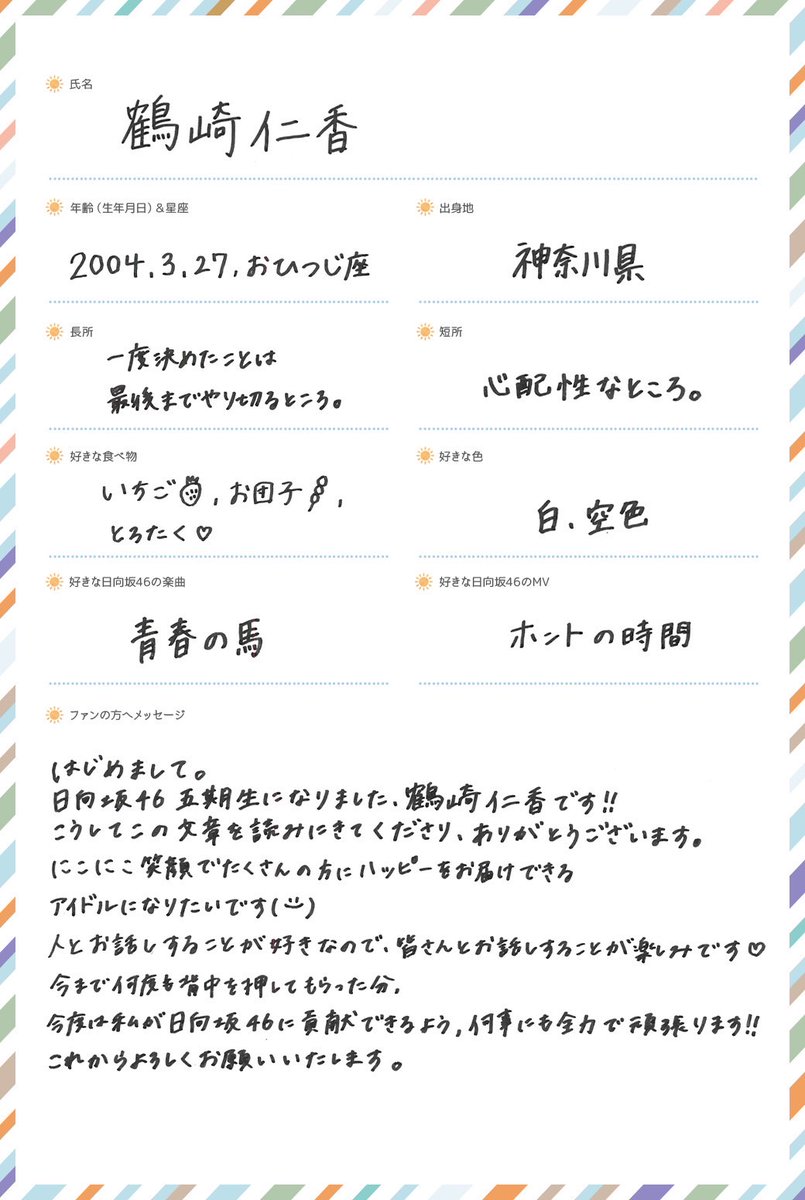 氏名
鶴崎仁香
年齢(生年月日)&星座
2004.3.27.おひつじ座
出身地
神奈川県
長所
一度決めたことは
最後までやり切るところ。
短所
心配性なところ。
好きな食べ物
いちご、お団子、
とろたく♡
好きな色
白、空色
好きな日向坂46の楽曲
青春の馬
好きな日向坂46のMV
ホントの時間
ファンの方へメッセージ
はじめまして。
日向坂46 五期生になりました、鶴崎仁香です!!
こうしてこの文章を読みにきてくださり、ありがとうございます。
にこにこ笑顔でたくさんの方にハッピーをお届けできる
アイドルになりたいです(¨̮)
人とお話しすることが好きなので、皆さんとお話しすることが楽しみです♡
今まで何度も背中を押してもらった分、
今度は私が日向坂46に貢献できるよう、何事にも全力で頑張ります!!
これからよろしくお願いいたします。